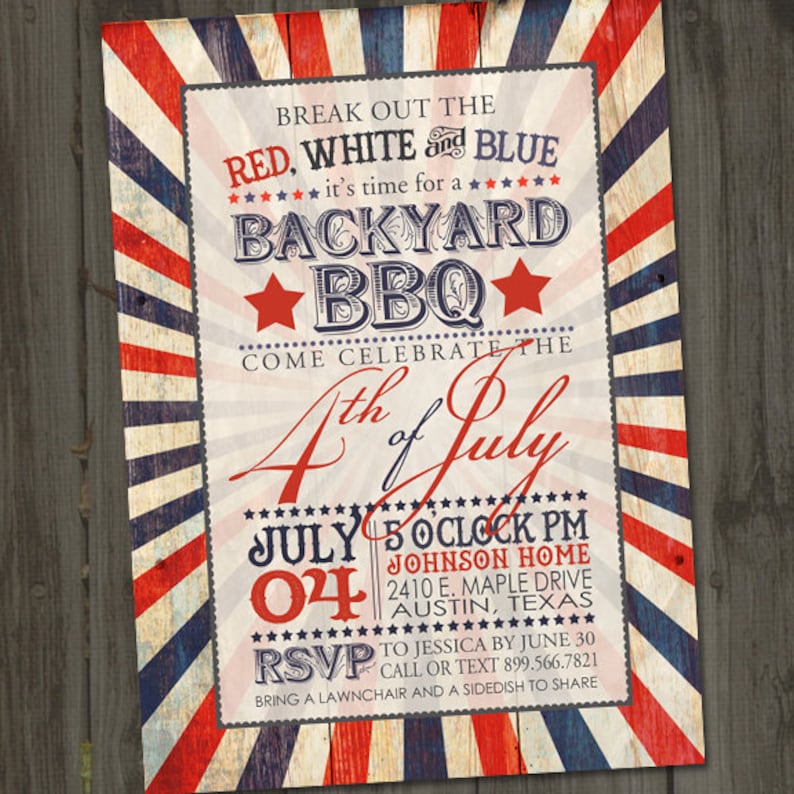 BREAK OUT THE
RED, WHITE and BLUE
it's time for a
BACKYARD
BBQ
COME CELEBRATE THE
4th of July
JULY 04
5 O'CLOCK PM
JOHNSON HOME
2410 E. MAPLE DRIVE
AUSTIN, TEXAS
RSVP
TO JESSICA BY JUNE 30
CALL OR TEXT 899.566.7821
BRING A LAWNCHAIR AND A SIDEDISH TO SHARE